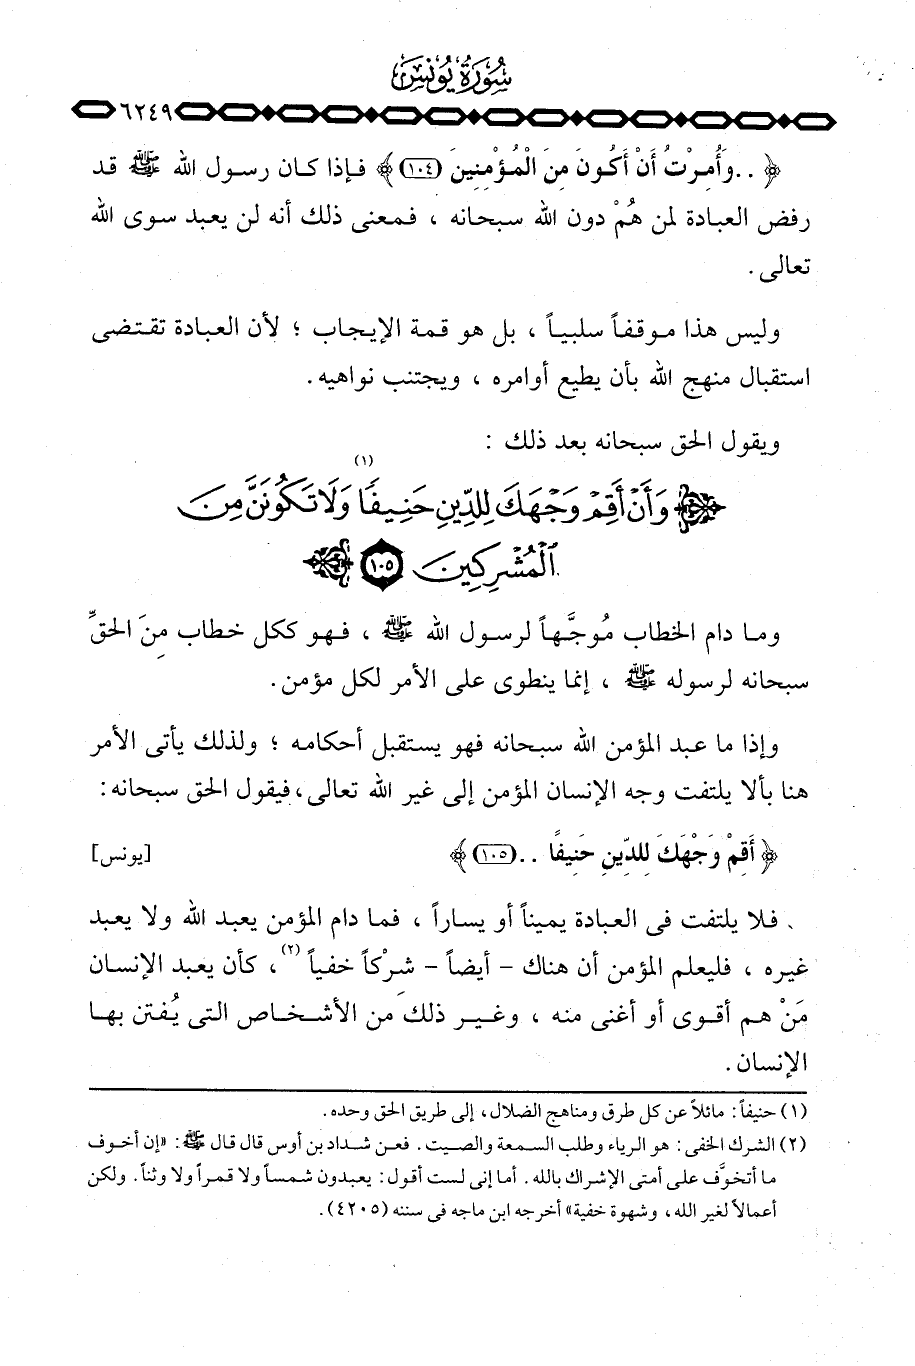 سُورَةُ يُونُسَ
٦٢٤٩
﴿ .. وَأُمِرْتُ أَنْ أَكُونَ مِنَ الْمُؤْمِنِينَ (١٠٤) ﴾ فإذا كان رسول الله ﷺ قد
رفض العبادة لمن هُمْ دون الله سبحانه ، فمعنى ذلك أنه لن يعبد سوى الله
تعالى .
وليس هذا موقفاً سلبياً ، بل هو قمة الإيجاب ؛ لأن العبادة تقتضى
استقبال منهج الله بأن يطيع أوامره ، ويجتنب نواهيه .
ويقول الحق سبحانه بعد ذلك :
وَأَنْ أَقِمْ وَجْهَكَ لِلدِّينِ حَنِيفًا (١) وَلَا تَكُونَنَّ مِنَ
الْمُشْرِكِينَ ١٠٥
وما دام الخطاب مُوجَّهاً لرسول الله ﷺ ، فهو ككل خطاب مِنَ الحقِّ
سبحانه لرسوله ﷺ ، إنما ينطوى على الأمر لكل مؤمن .
وإذا ما عبد المؤمن الله سبحانه فهو يستقبل أحكامه ؛ ولذلك يأتى الأمر
هنا بألا يلتفت وجه الإنسان المؤمن إلى غير الله تعالى ، فيقول الحق سبحانه :
﴿ أَقِمْ وَجْهَكَ لِلدِّينِ حَنِيفًا .. (١٠٥) ﴾ [يونس]
فلا يلتفت فى العبادة يميناً أو يساراً ، فما دام المؤمن يعبد الله ولا يعبد
غيره ، فليعلم المؤمن أن هناك - أيضاً - شِرْكاً خفياً (٢) ، كأن يعبد الإنسان
مَنْ هم أقوى أو أغنى منه ، وغير ذلك من الأشخاص التى يُفتن بها
الإنسان .
(١) حنيفاً : مائلاً عن كل طرق ومناهج الضلال ، إلى طريق الحق وحده .
(٢) الشرك الخفى : هو الرياء وطلب السمعة والصيت . فعن شداد بن أوس قال قال ﷺ : «إن أخوف
ما أتخوَّف على أمتى الإشراك بالله . أما إنى لست أقول : يعبدون شمساً ولا قمراً ولا وثناً . ولكن
أعمالاً لغير الله ، وشهوة خفية» أخرجه ابن ماجه فى سننه (٤٢٠٥) .